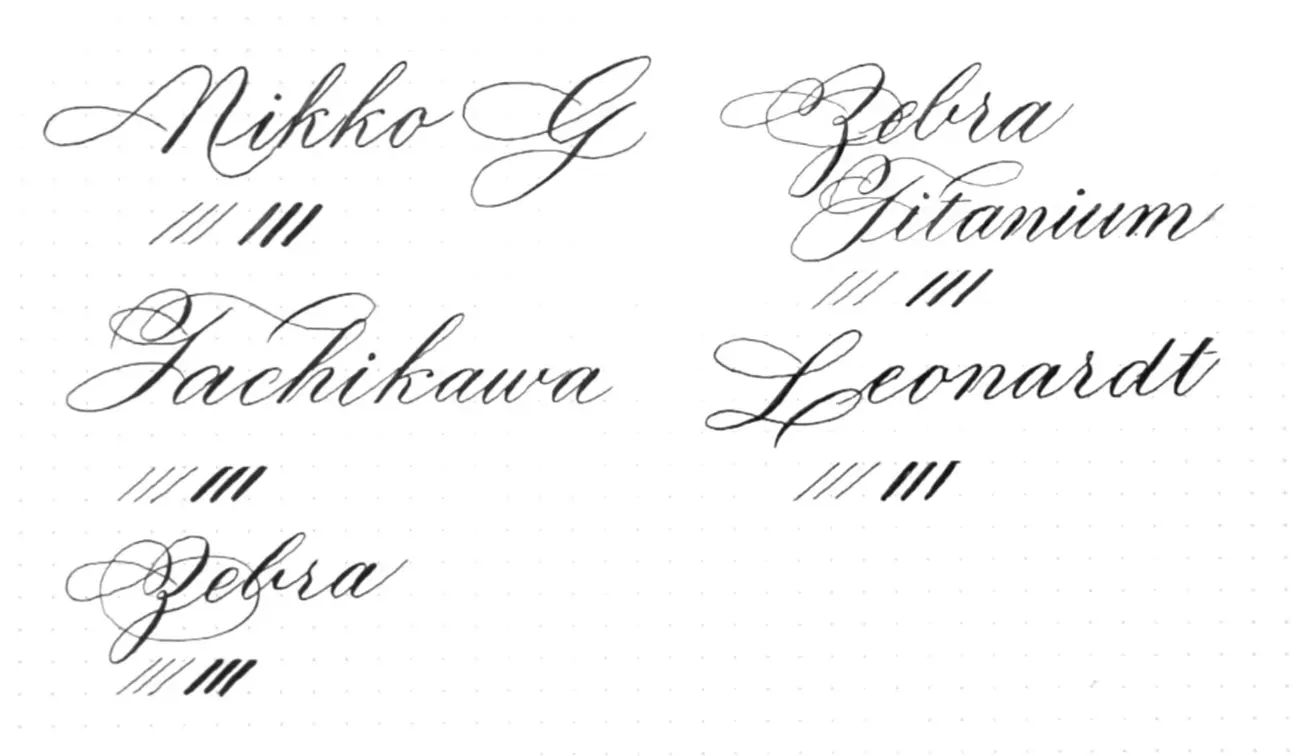 Nikko G
Tachikawa
Zebra
Zebra
Titanium
Leonardt